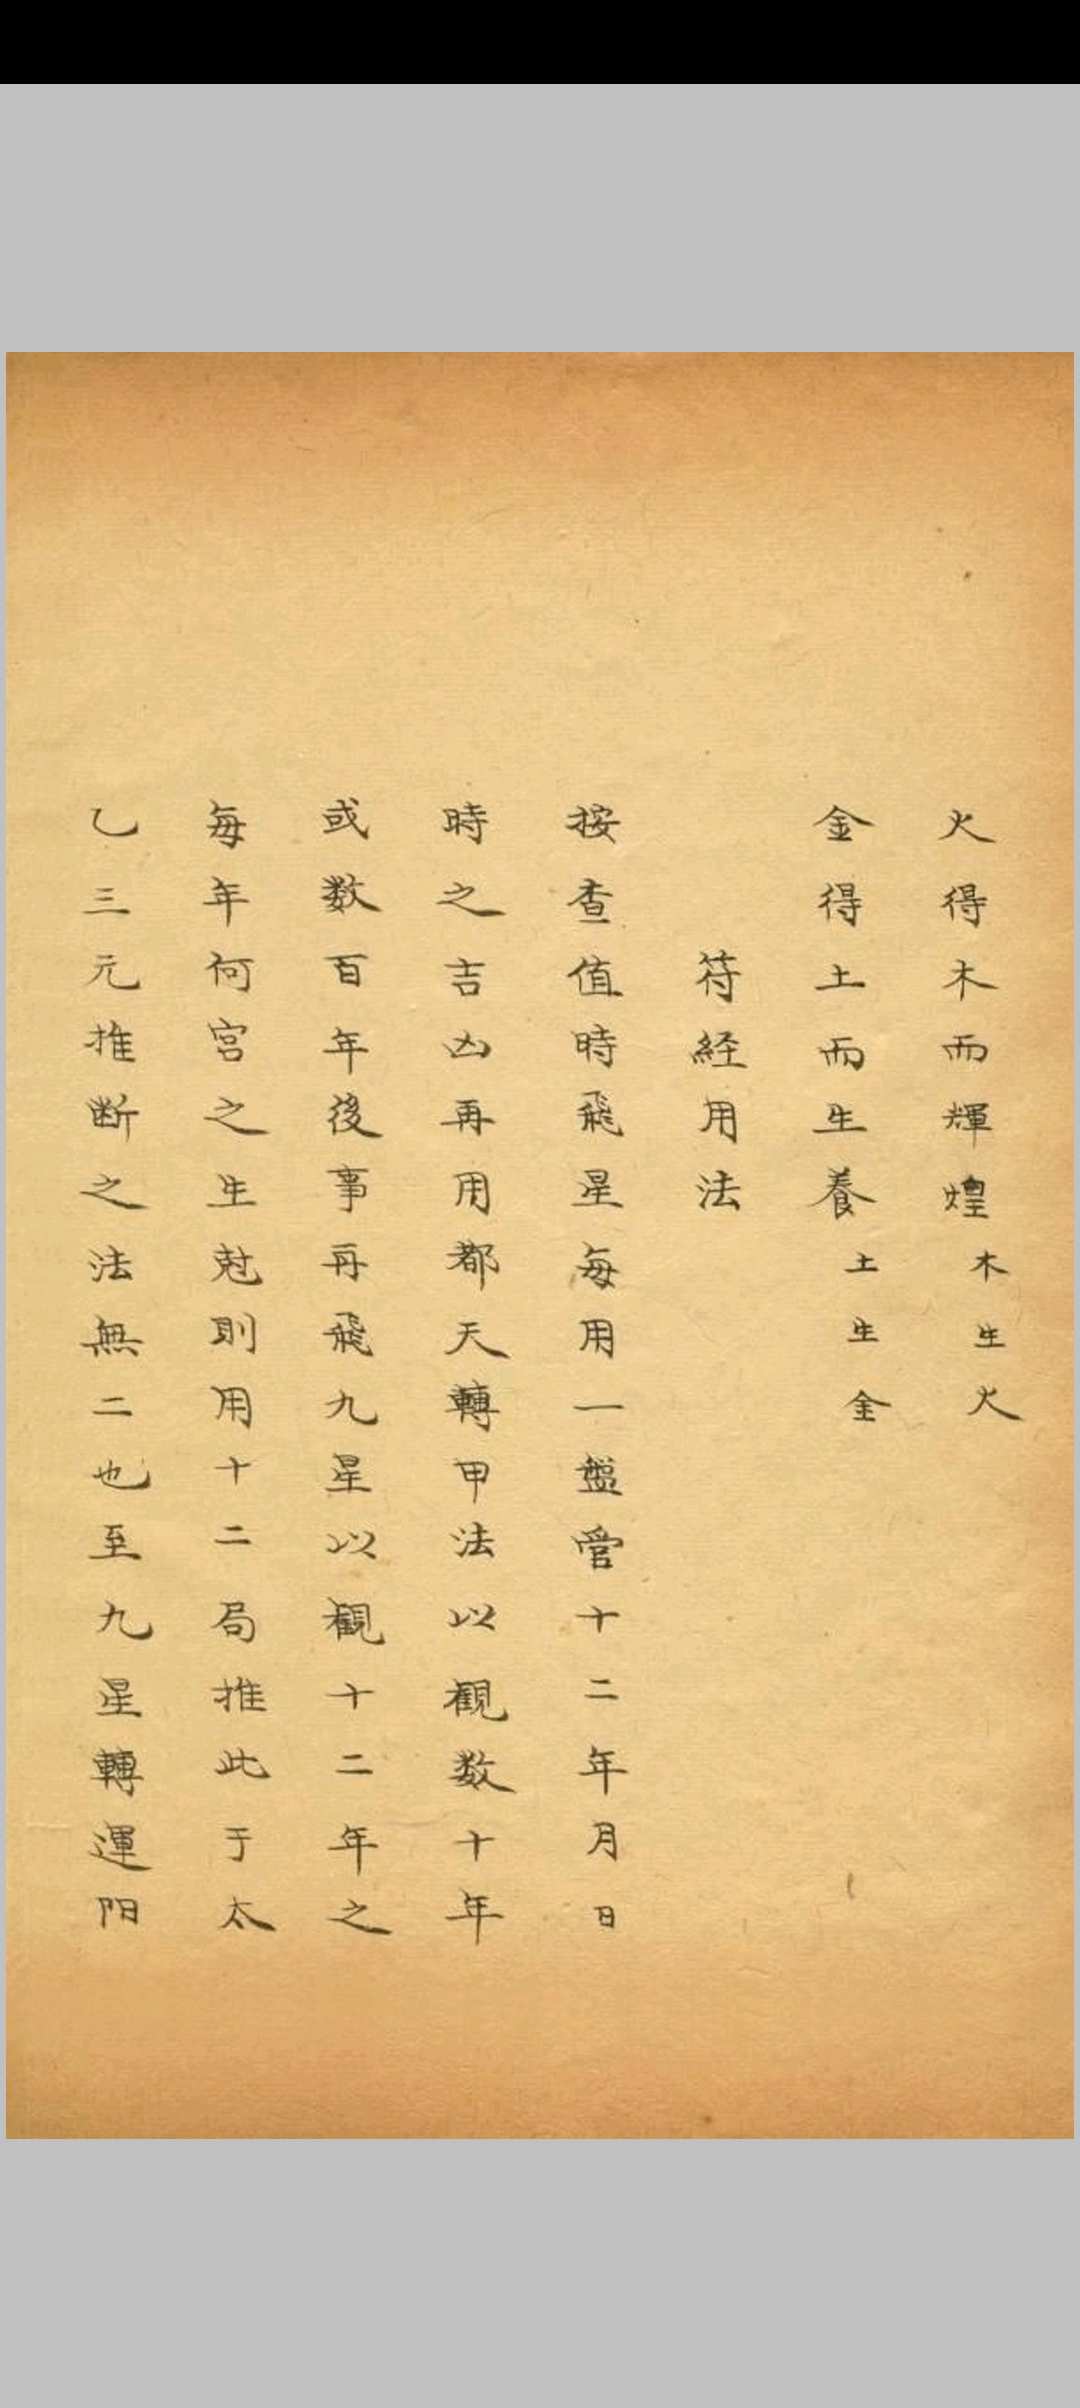 火得木而輝煌木生火
金得土而生養土生金
符経用法
按查值時飛星每用一盤管十二年月日
時之吉凶再用都天轉甲法以觀数十年
或数百年後事再飛九星以觀十二年之
每年何宮之生尅則用十二局推此于太
乙三元推断之法無二也至九星轉運陽